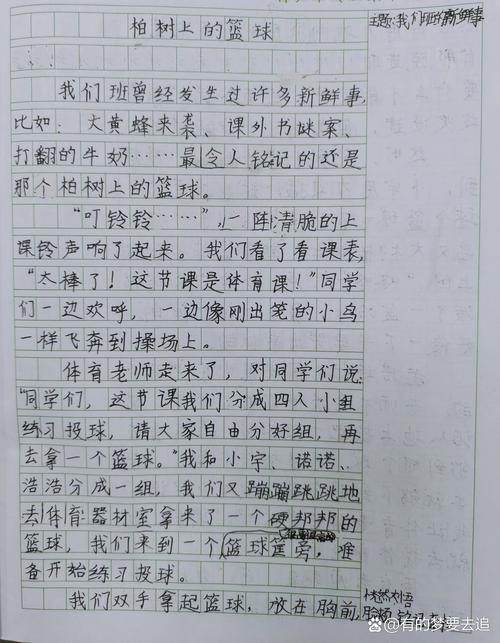 主题:我们班的新鲜事
柏树上的篮球
我们班曾经发生过许多新鲜事,
比如:大黄蜂来袭、课外书谜案、
打翻的牛奶……最令人铭记的还是
那个柏树上的篮球。
“叮铃铃……”,一阵清脆的上
课铃声响了起来。我们看了看课表,
“太棒了!这节课是体育课!”同学
们一边欢呼,一边像刚出笼的小鸟
一样飞奔到操场上。
体育老师走来了,对同学们说:
“同学们,这节课我们分成四人小组
练习投球,请大家自由分好组,再
去拿一个篮球。”我和小宇、诺诺、
浩浩分成一组,我们又蹦蹦跳跳地
去体育器材室拿来了一个硬邦邦的
篮球,我们来到一个篮球筐旁,准
备开始练习投球。
我们双手拿起篮球,放在胸前,
恍然大悟
@有的梦要去追